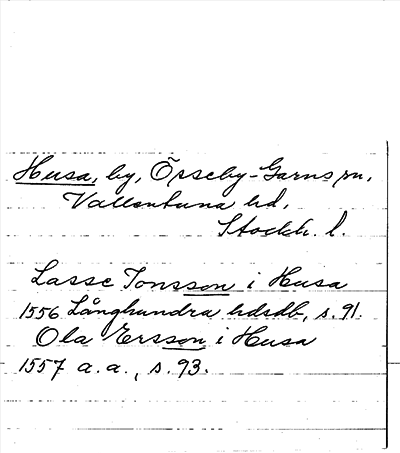 Husa, by, Össeby-Garns sn,
Vallentuna hd,
Stockh. l.
Lasse Jonsson i Husa
1556 Långhundra hdsdb, s. 91.
Ola Ersson i Husa
1557 a. a., s. 93.